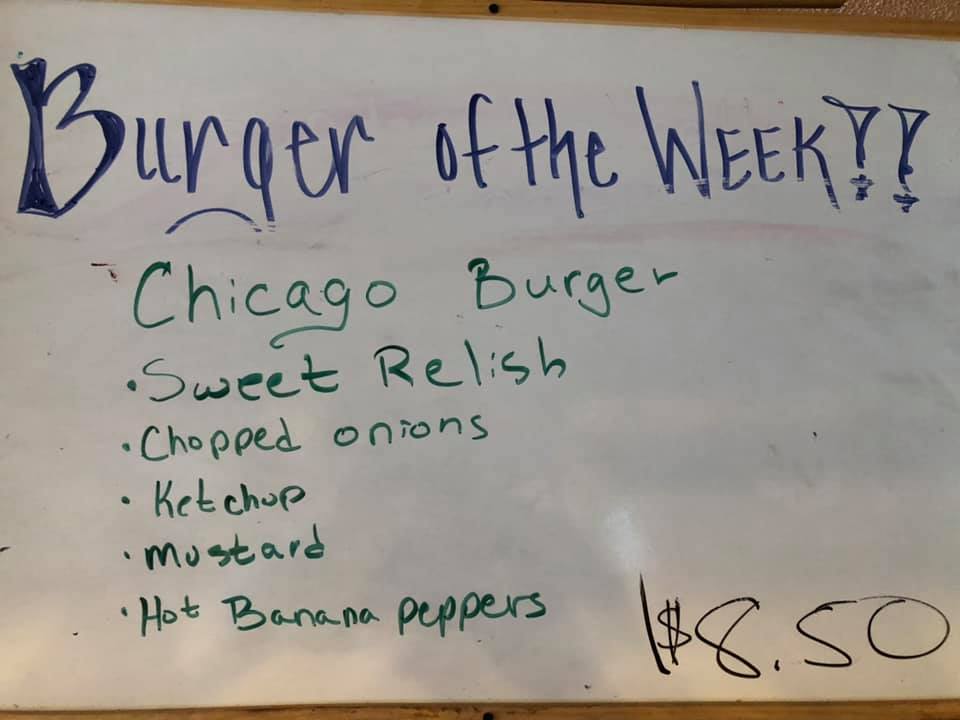 Burger of the WEEK!!
Chicago Burger
• Sweet Relish
• Chopped onions
• Ketchup
• Mustard
• Hot Banana peppers
$8.50